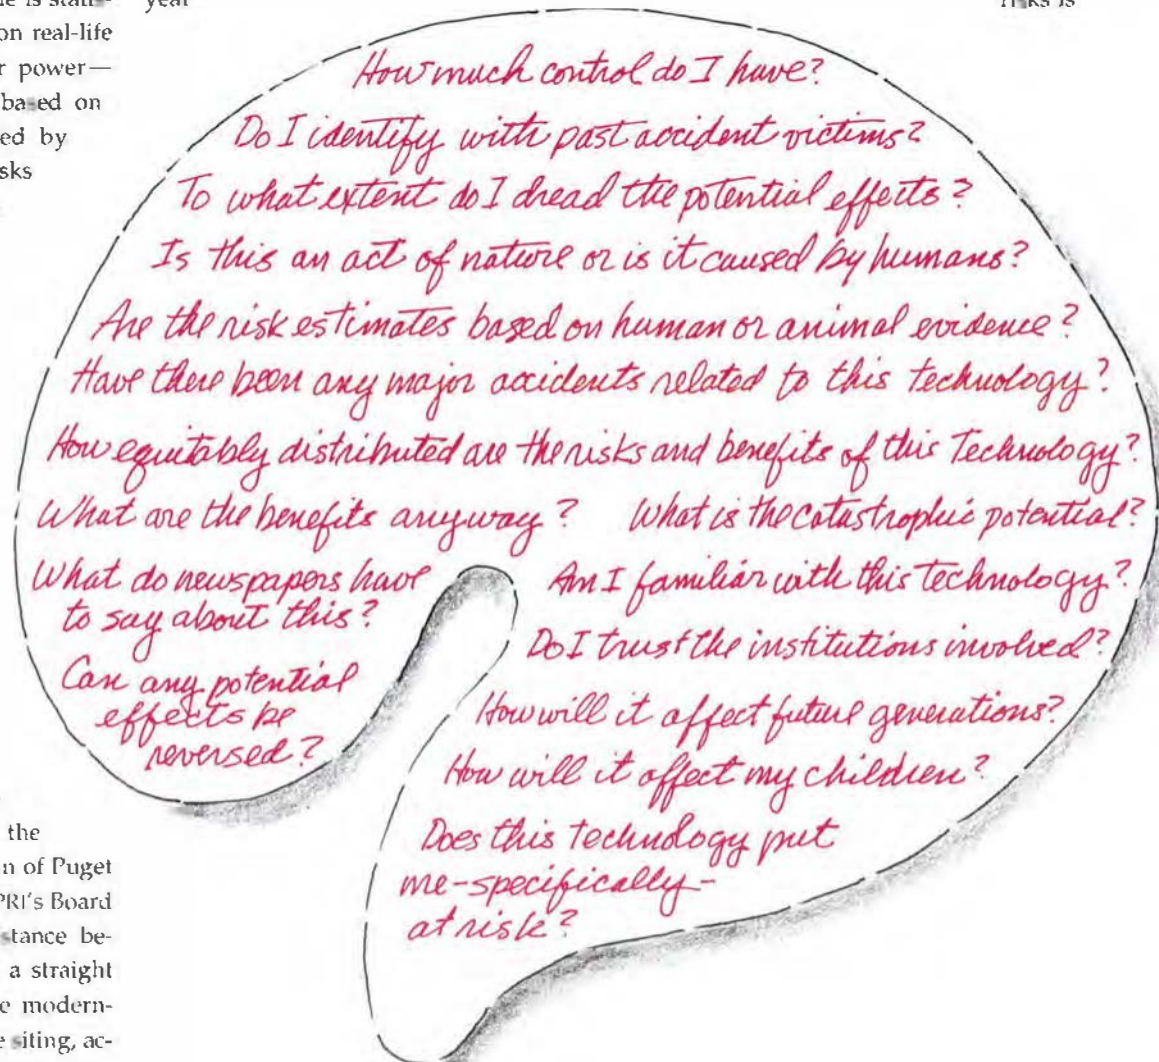 year
on real-life
r power—
based on
ed by
sks
How much control do I have?
Do I identify with past accident victims?
To what extent do I dread the potential effects?
Is this an act of nature or is it caused by humans?
Are the risk estimates based on human or animal evidence?
Have there been any major accidents related to this technology?
How equitably distributed are the risks and benefits of this Technology?
What are the benefits anyway? What is the catastrophic potential?
What do newspapers have
to say about this?
Am I familiar with this technology?
Do I trust the institutions involved?
Can any potential
effects be
reversed?
How will it affect future generations?
How will it affect my children?
Does this technology put
me-specifically-
at risk?
the
n of Puget
PRI's Board
stance be-
a straight
e modern-
e siting, ac-